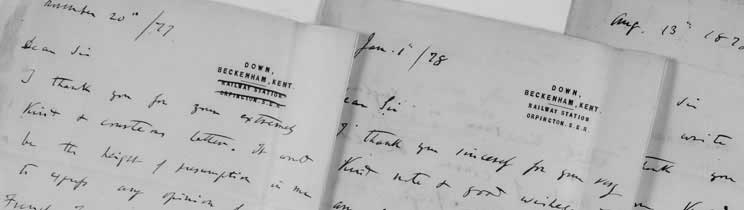 November 20th /77.
DOWN,
BECKENHAM, KENT.
RAILWAY STATION
ORPINGTON. S.E.R.
Dear Sir
I thank you for your extremely
kind & courteous letter. It would
be the height of presumption in me
to express any opinion
French
Jan. 1st /78
DOWN,
BECKENHAM, KENT.
RAILWAY STATION
ORPINGTON. S.E.R.
Dear Sir
I thank you sincerely for your very
kind note & good wishes
Aug. 13th 187
Sir
write
thank you